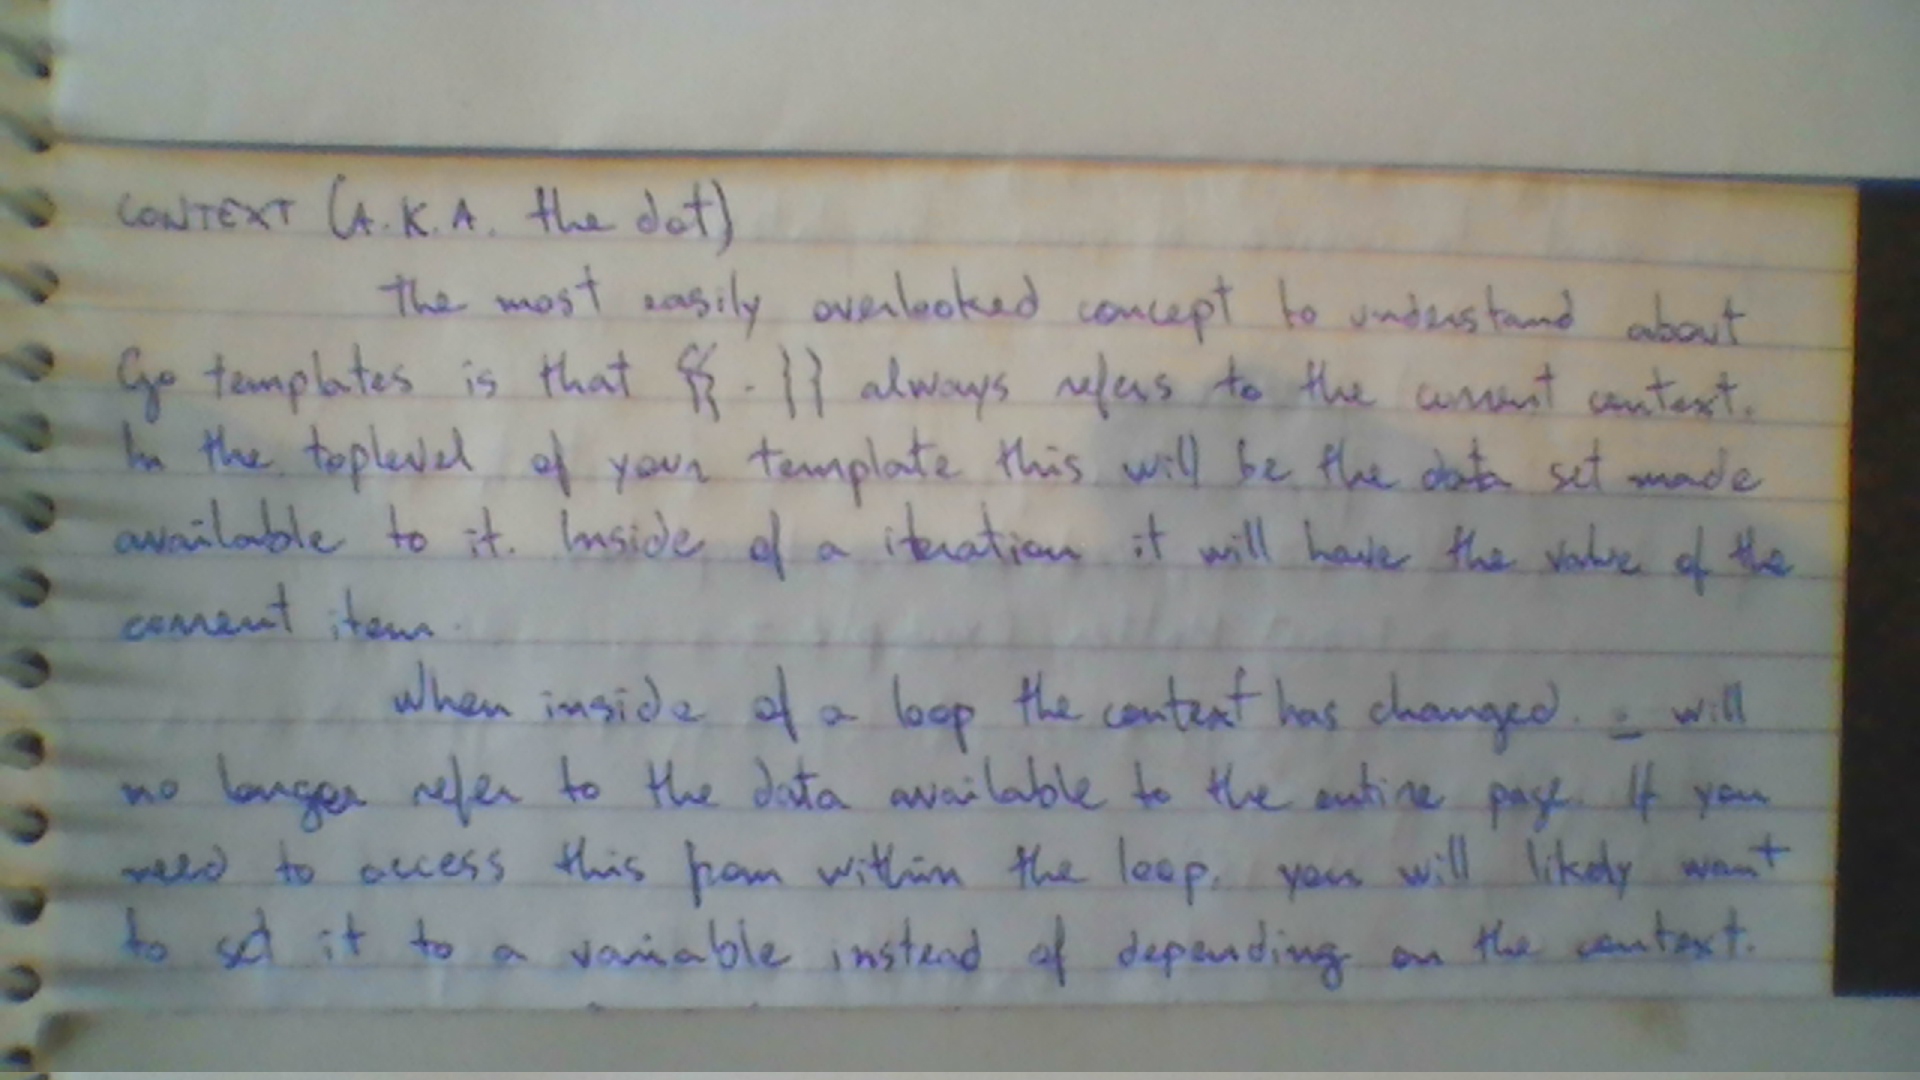 CONTEXT (A.K.A. the dot)
The most easily overlooked concept to understand about
Go templates is that {{ . }} always refers to the current context.
In the toplevel of your template this will be the data set made
available to it. Inside of a iteration it will have the value of the
current item.
When inside of a loop the context has changed. . will
no longer refer to the data available to the entire page. If you
need to access this from within the loop, you will likely want
to set it to a variable instead of depending on the context.